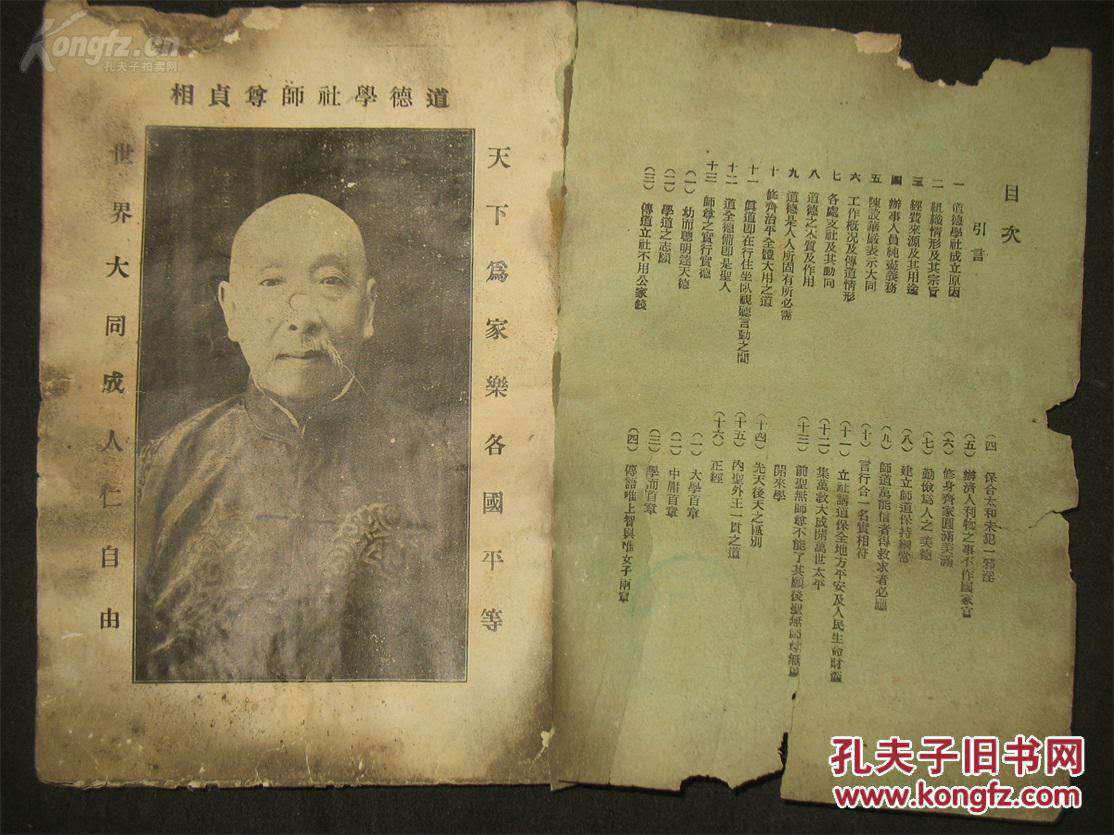 Kongfz.cn
孔夫子拍卖网
道德學社師尊貞相
天下爲家樂各國平等
世界大同成人仁自由
目次
引言
一 道德學社成立原因
二 組織情形及其宗旨
三 經費來源及其用途
四 辦事人員純盡義務
五 陳設莊嚴表示大同
六 工作概况及傳道情形
七 各處支社及其動向
八 道德之本質及作用
九 道德是人人所固有所必需
十 修齊治平全體大用之道
十一 眞道即在行住坐臥視聽言動之間
十二 道全德備即是聖人
十三 師尊之實行實德
(一) 幼而聰明達天德
(二) 學道之志願
(三) 傳道立社不用公家錢
(四 保合太和未犯一邪淫
(五) 辦濟人利物之事不作國家官
(六) 修身齊家圓滿美滿
(七) 勤儉爲人之美德
(八) 建立師道保持綱常
(九) 師道萬能信者得救求者必應
(十) 言行合一名實相符
(十一) 立社講道保全地方平安及人民生命財產
(十二) 集萬敎大成開萬世太平
(十三) 前聖無師尊不能了其願後聖無師尊無以
開來學
(十四) 先天後天之區別
(十五) 內聖外王一貫之道
(十六) 正經
(一) 大學首章
(二) 中庸首章
(三) 學而首章
(四) 傳語唯上智與唯女子兩章
孔夫子旧书网
www.kongfz.com